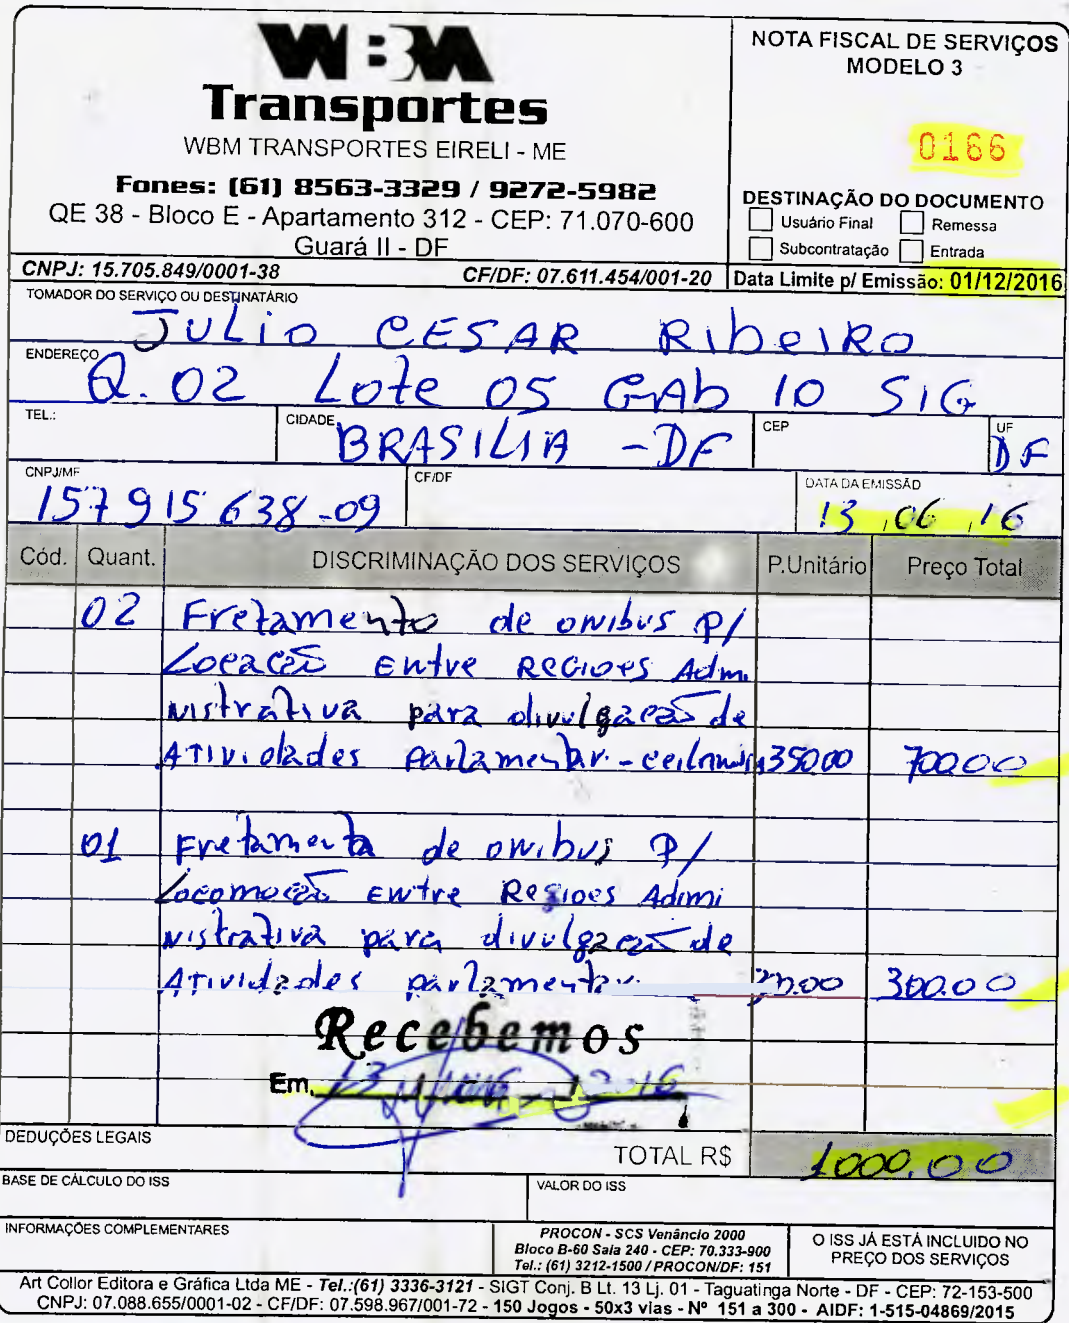 WBM
Transportes
WBM TRANSPORTES EIRELI - ME
Fones: (61) 8563-3329 / 9272-5982
QE 38 - Bloco E - Apartamento 312 - CEP: 71.070-600
Guará II - DF
CNPJ: 15.705.849/0001-38 CF/DF: 07.611.454/001-20
NOTA FISCAL DE SERVIÇOS
MODELO 3
0166
DESTINAÇÃO DO DOCUMENTO
Usuário Final Remessa
Subcontratação Entrada
Data Limite p/ Emissão: 01/12/2016
TOMADOR DO SERVIÇO OU DESTINATÁRIO
JULIO CESAR RibeiRO
ENDEREÇO
Q. 02 Lote 05 GAb 10 SIG
TEL.: CIDADE BRASILIA - DF CEP UF DF
CNPJ/MF 157915638-09 CF/DF DATA DA EMISSÃO 13,06,16
Cód. Quant. DISCRIMINAÇÃO DOS SERVIÇOS P.Unitário Preço Total
02 Fretamento de onibus P/
Locação Entre Regioes Admi
nistrativa para divulgação de
Atividades parlamentar - 35000 70000
01 Fretamento de onibus P/
Locomoção Entre Regioes Admi
nistrativa para divulgação de
Atividades parlamentar 300.00
Recebemos
Em, 13 2016
DEDUÇÕES LEGAIS
TOTAL R$ 1000,00
BASE DE CÁLCULO DO ISS VALOR DO ISS
INFORMAÇÕES COMPLEMENTARES
PROCON - SCS Venâncio 2000
Bloco B-60 Sala 240 - CEP: 70.333-900
Tel.: (61) 3212-1500 / PROCON/DF: 151
O ISS JÁ ESTÁ INCLUIDO NO
PREÇO DOS SERVIÇOS
Art Collor Editora e Gráfica Ltda ME - Tel.:(61) 3336-3121 - SIGT Conj. B Lt. 13 Lj. 01 - Taguatinga Norte - DF - CEP: 72-153-500
CNPJ: 07.088.655/0001-02 - CF/DF: 07.598.967/001-72 - 150 Jogos - 50x3 vias - Nº 151 a 300 - AIDF: 1-515-04869/2015